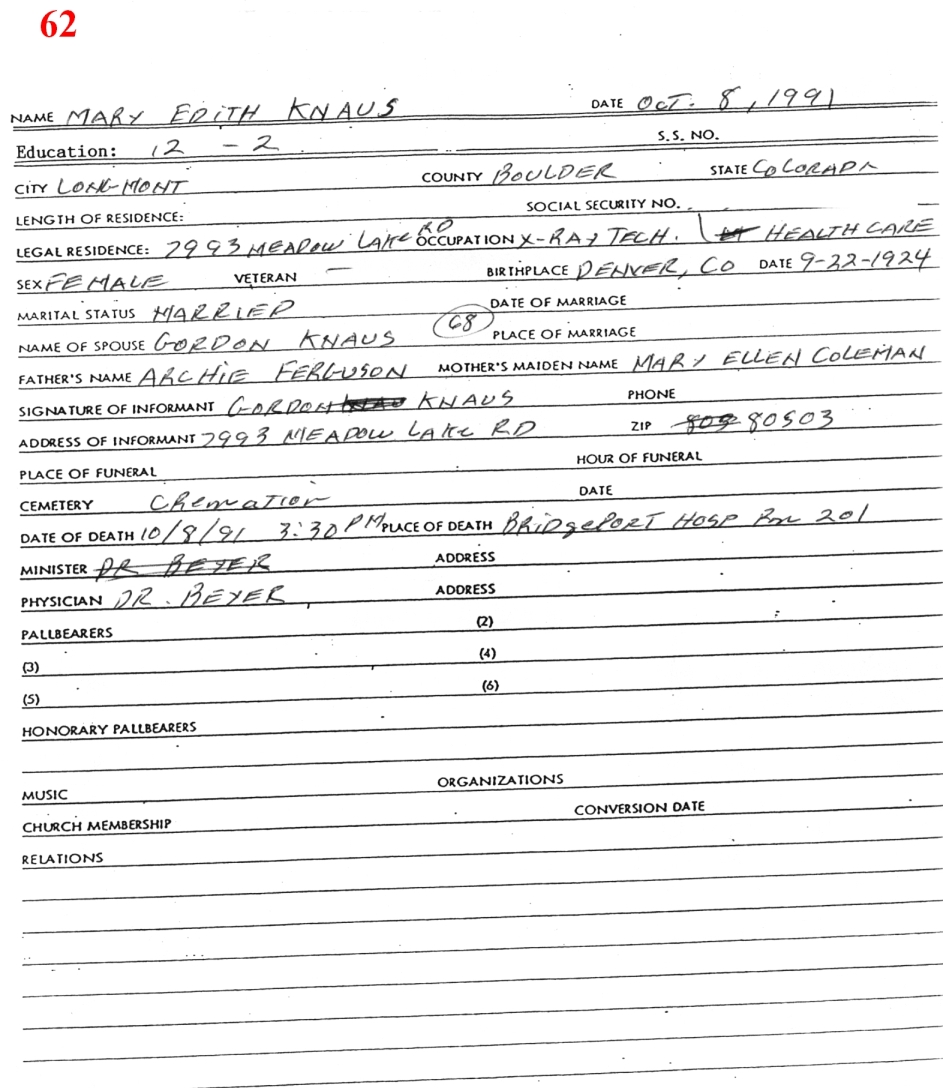 62
NAME MARY EDITH KNAUS DATE OCT. 8, 1991
Education: 12 - 2 S.S. NO.
CITY LONGMONT COUNTY BOULDER STATE COLORADO
LENGTH OF RESIDENCE: SOCIAL SECURITY NO.
LEGAL RESIDENCE: 7993 MEADOW LAKE RD OCCUPATION X-RAY TECH. HEALTH CARE
SEX FEMALE VETERAN — BIRTHPLACE DENVER, CO DATE 9-22-1924
MARITAL STATUS MARRIED DATE OF MARRIAGE
NAME OF SPOUSE GORDON KNAUS 68 PLACE OF MARRIAGE
FATHER'S NAME ARCHIE FERGUSON MOTHER'S MAIDEN NAME MARY ELLEN COLEMAN
SIGNATURE OF INFORMANT GORDON KNAUS PHONE
ADDRESS OF INFORMANT 7993 MEADOW LAKE RD ZIP 809 80503
PLACE OF FUNERAL HOUR OF FUNERAL
CEMETERY Cremation DATE
DATE OF DEATH 10/8/91 3:30 PM PLACE OF DEATH BRIDGEPORT HOSP Rm 201
MINISTER DR BEYER ADDRESS
PHYSICIAN DR. BEYER ADDRESS
PALLBEARERS (2)
(3) (4)
(5) (6)
HONORARY PALLBEARERS
MUSIC ORGANIZATIONS
CHURCH MEMBERSHIP CONVERSION DATE
RELATIONS